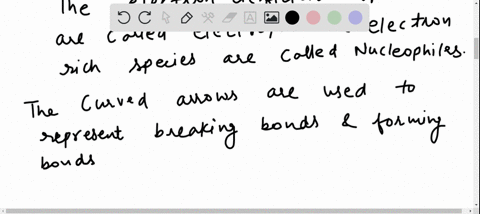 The
are called electron
rich species are called Nucleophiles.
The Curved arrows are used to
represent breaking bonds & forming
bonds